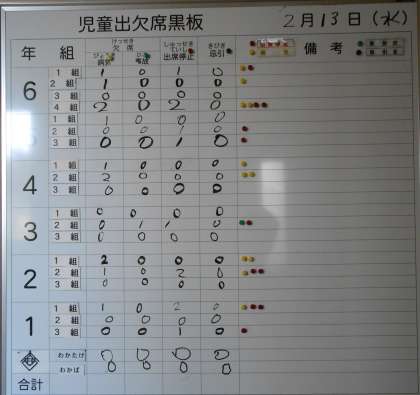 児童出欠席黒板 2月13日(水)
年 組 けっせき 欠席 びょうき 病気 じこ 事故 しゅっせきていし 出席停止 きびき 忌引 備考
6 1組 1 0 1 0
2組 1 0 0 0
3組 0 0 0 0
4組 2 0 2 0
1組 1 0 0 0
2組 0 0 1 0
3組 0 0 1 0
4 1組 1 0 0 0
2組 2 0 0 0
3組 0 0 0 0
3 1組 0 0 0 0
2組 0 1 1 0
3組 0 0 0 0
2 1組 2 0 0 0
2組 1 0 2 0
3組 0 0 0 0
1 1組 1 0 2 0
2組 0 0 0 0
3組 0 0 1 0
わかたけ 0 0 0 0
わかば 0 0 0 0
合計